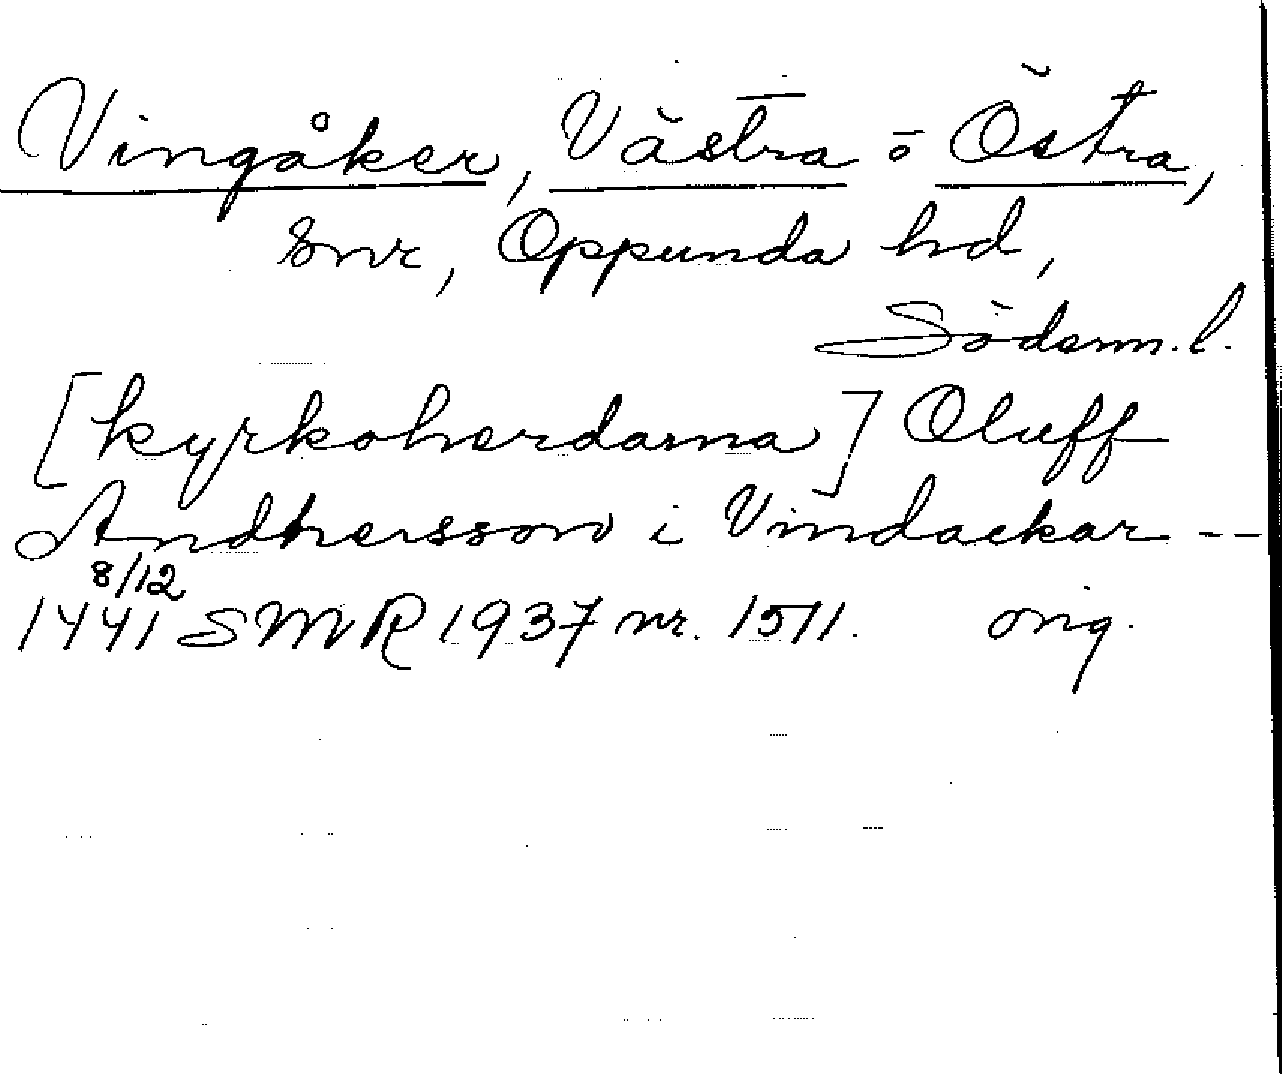 Vingåker, Västra o Östra,
snr, Oppunda hd,
Söderm.l.
[kyrkoherdarna] Oluff
Andhersson i Vindackar --
8/12
1441 SMR 1937 nr. 1511. orig.